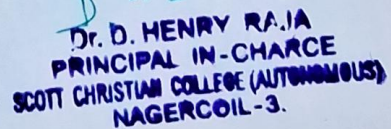 Dr. D. HENRY RAJA
PRINCIPAL IN-CHARCE
SCOTT CHRISTIAN COLLEGE (AUTONOMOUS)
NAGERCOIL-3.